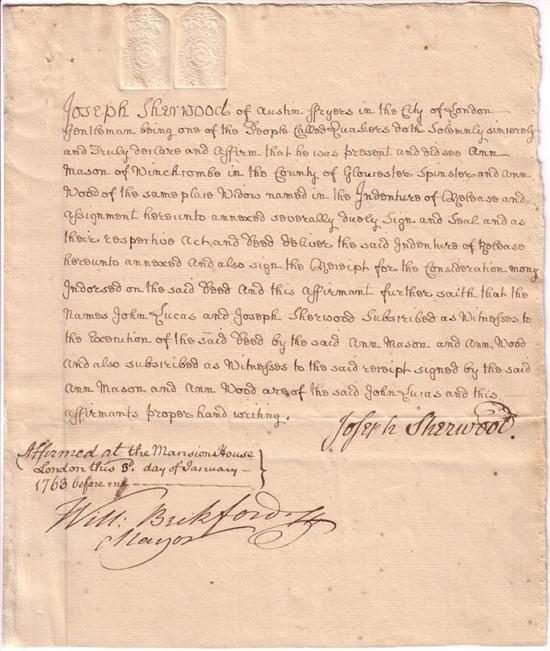 Joseph Sherwood of Austin ffryers in the City of London
Gentleman being one of the People Called Quakers doth Solemnly sincerely
and Truly declare and Affirm that he was present and did see Ann
Mason of Winchcombe in the County of Gloucester Spinster and Ann
Wood of the same place Widow named in the Indenture of Release and
Assignment hereunto annexed severally duely Sign and Seal and as
their respective Act and Deed deliver the said Indenture of Release
hereunto annexed And also sign the Receipt for the Consideration mony
Indorsed on the said Deed And this affirmant further saith that the
Names John Lucas and Joseph Sherwood Subscribed as Witnesses to
the Execution of the said Deed by the said Ann Mason and Ann Wood
And also subscribed as Witnesses to the said receipt signed by the said
Ann Mason and Ann Wood are of the said John Lucas and this
affirmants proper hand writing.
Joseph Sherwood.
Affirmed at the Mansion House
London this 3d. day of January
1763 before me
Will: Beckford
Mayor